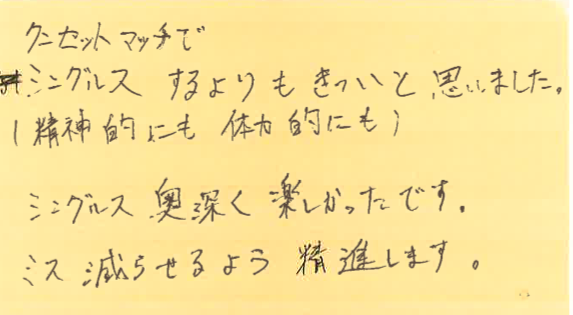 クンセットマッチで
シングルスするよりもきついと思いました。
(精神的にも 体力的にも)
シングルス 奥深く 楽しかったです。
ミス 減らせるよう 精進します。